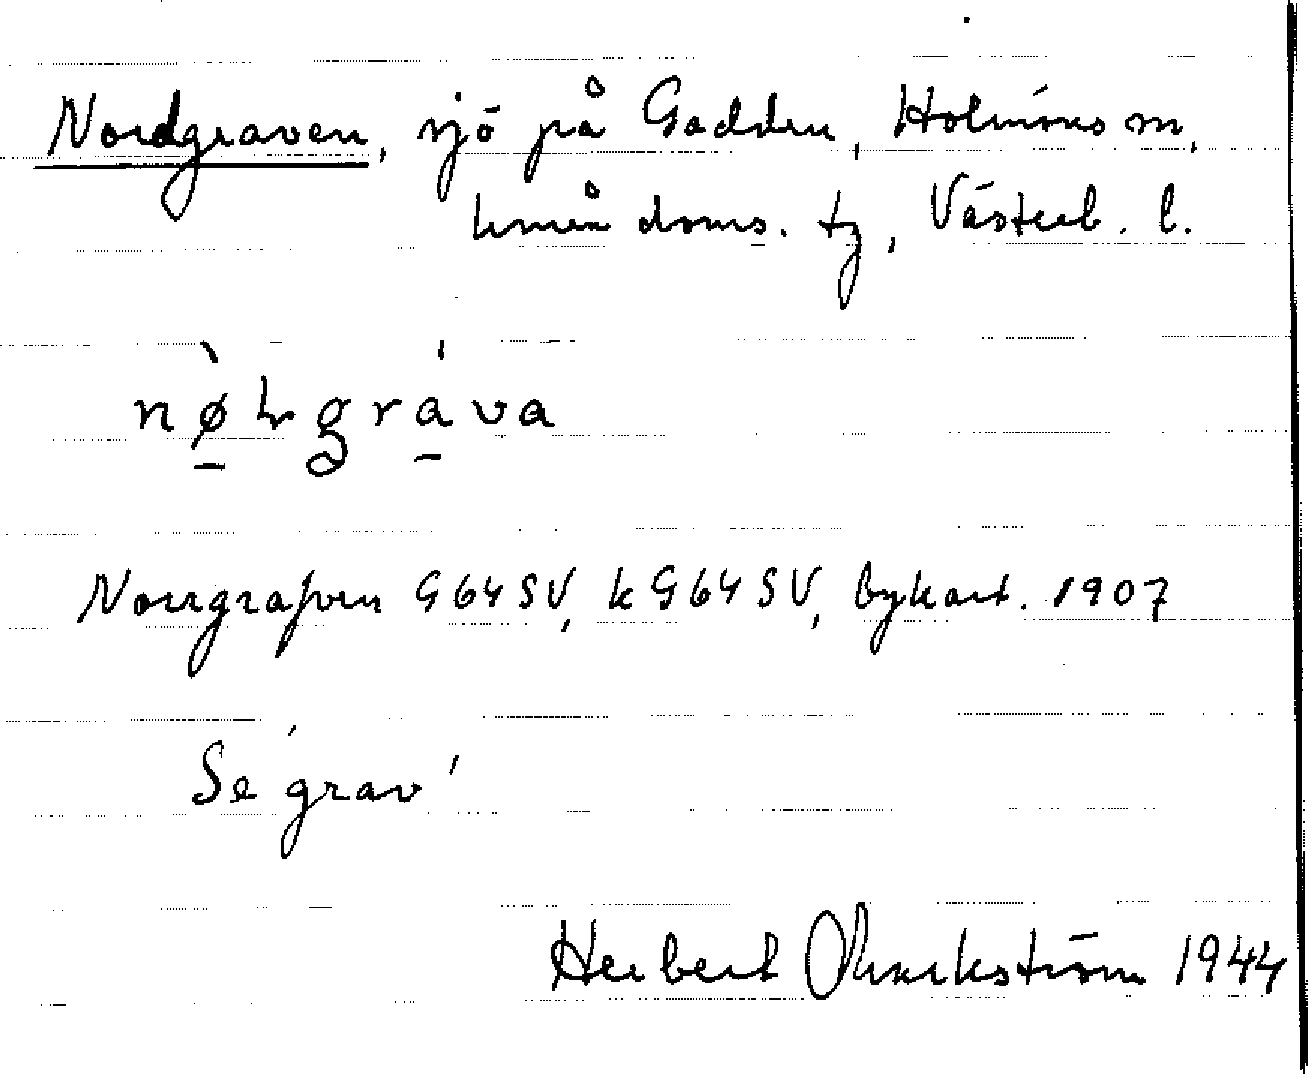 Nordgraven, sjö på Gadden, Holmöns sn,
Umeå doms. tg, Västerb. l.
Norrgrafven G64SV, kG64SV, bykart. 1907
Se 'grav'
Herbert Markström 1944